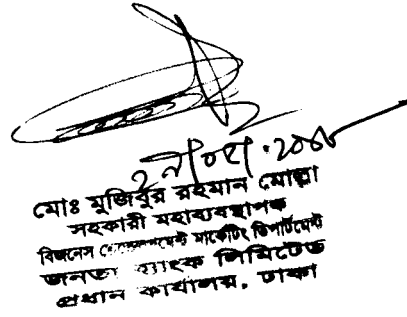 মোঃ মুজিবুর রহমান মোল্লা
সহকারী মহাব্যবস্থাপক
বিজনেস ডেভেলপমেন্ট মার্কেটিং ডিপার্টমেন্ট
জনতা ব্যাংক লিমিটেড
প্রধান কার্যালয়, ঢাকা